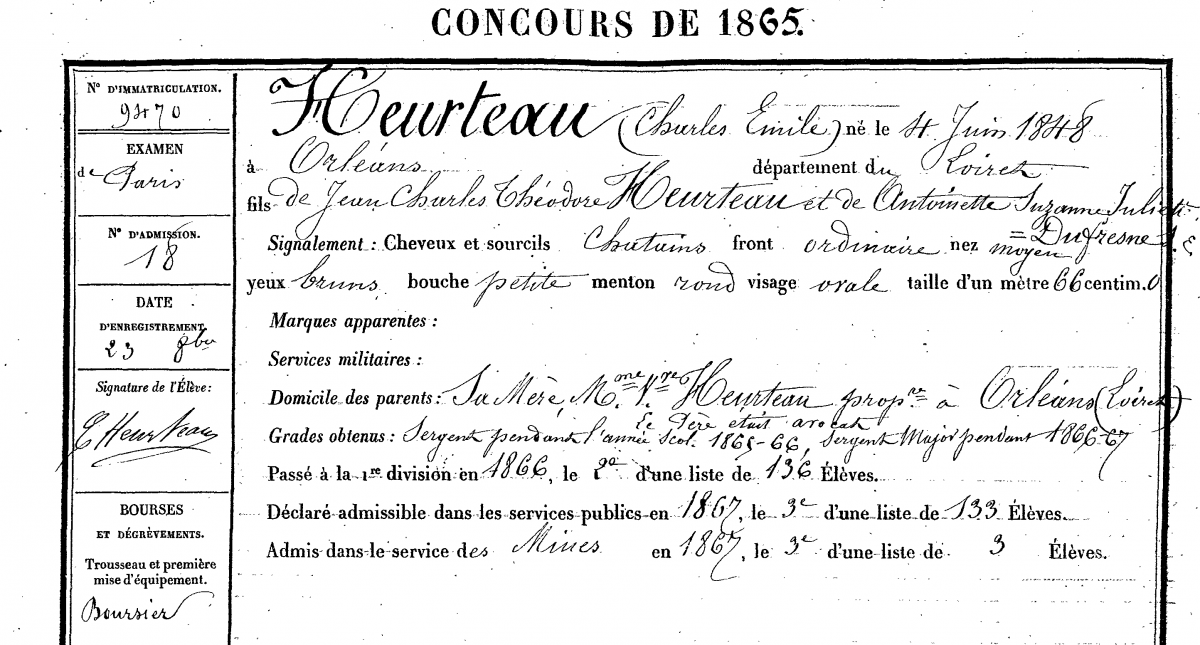 CONCOURS DE 1865.
N° D'IMMATRICULATION.
9470
EXAMEN
de Paris
N° D'ADMISSION.
18
DATE
D'ENREGISTREMENT.
23 8bre
Signature de l'Élève:
E Heurteau
BOURSES
ET DÉGRÈVEMENTS.
Trousseau et première
mise d'équipement.
Boursier
Heurteau (Charles Emile) né le 4 Juin 1848
à Orléans département du Loiret
fils de Jean Charles Théodore Heurteau et de Antoinette Suzanne Juliette
Dufresne S. E
Signalement : Cheveux et sourcils Chatains front ordinaire nez moyen
yeux bruns bouche petite menton rond visage ovale taille d'un mètre 66 centim. 0
Marques apparentes :
Services militaires :
Domicile des parents : Sa Mère, Mme Vve Heurteau propre à Orléans (Loiret)
Le Père était avocat
Grades obtenus : Sergent pendant l'année scol. 1865-66, Sergent Major pendant 1866-67
Passé à la 1re division en 1866, le 2e d'une liste de 136 Élèves.
Déclaré admissible dans les services publics en 1867, le 3e d'une liste de 133 Élèves.
Admis dans le service des Mines en 1867, le 3e d'une liste de 3 Élèves.